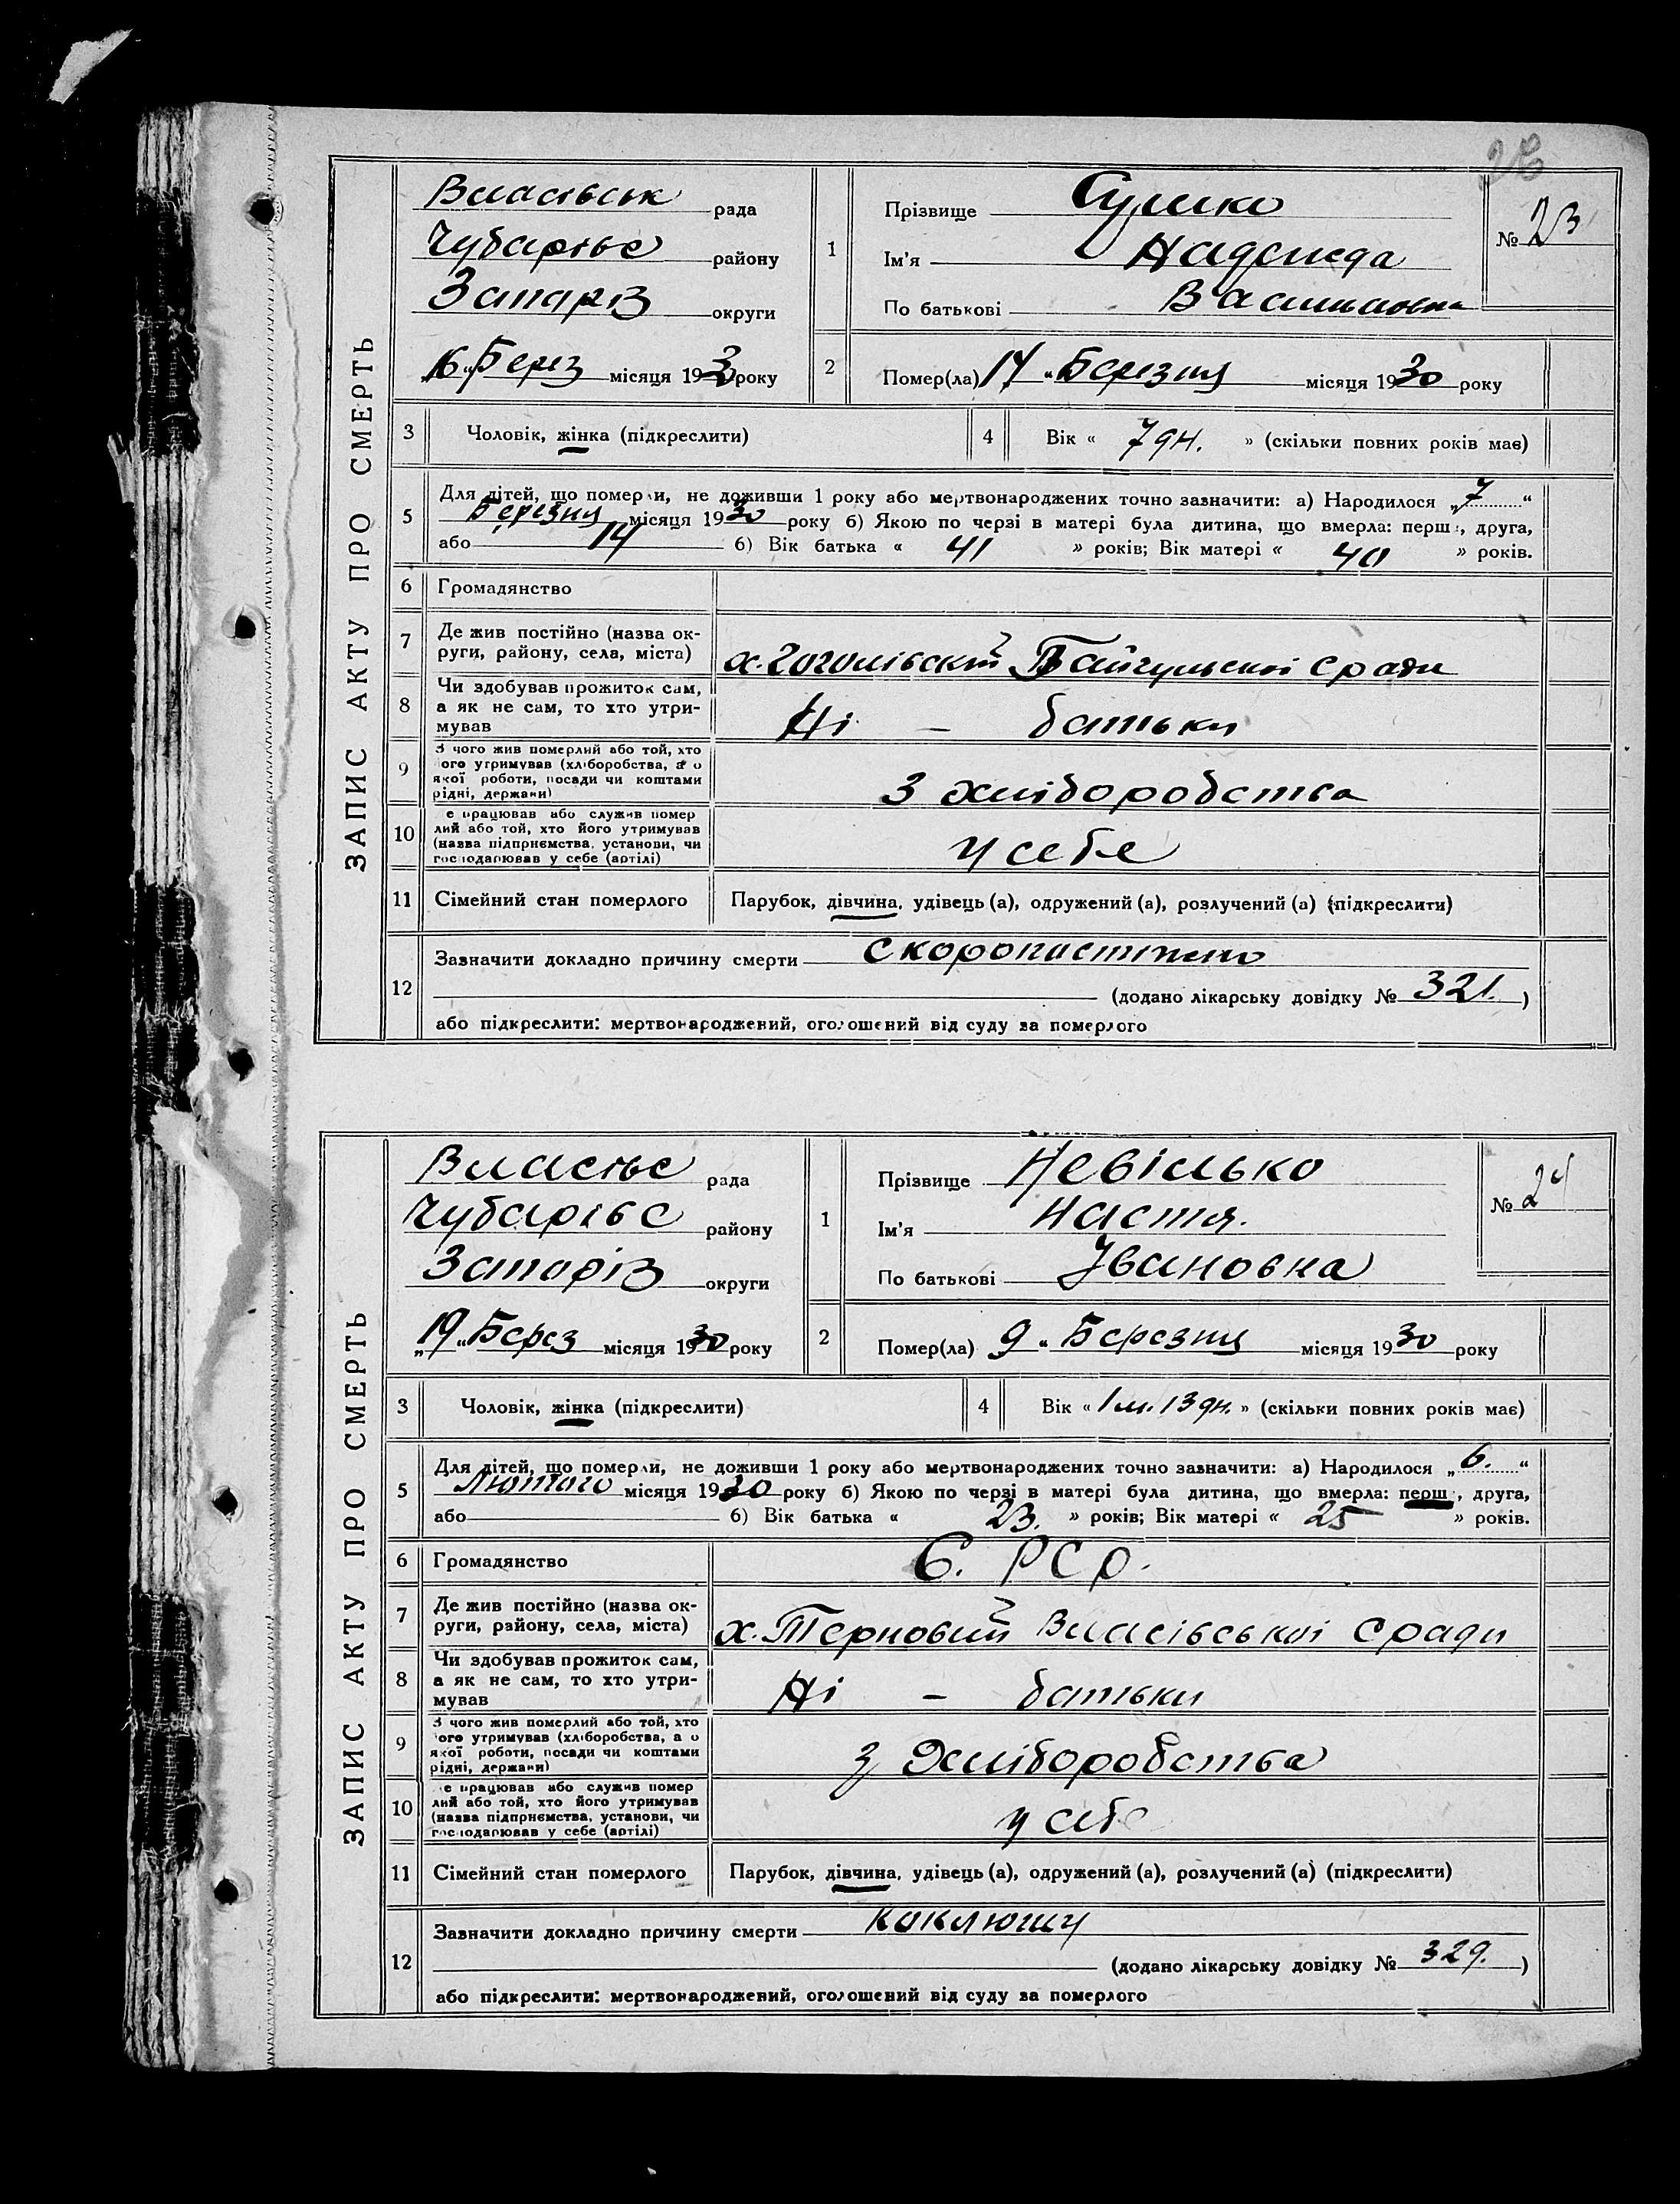 28
ЗАПИС АКТУ ПРО СМЕРТЬ
Власівськ рада
Чубарівс району
Запоріз округи
16 „ Берез місяця 1930 року
1 Прізвище Сушко
Ім'я Надежда
По батькові Васильовна
№ 23
2 Помер(ла) 14 „ Березня місяця 1930 року
3 Чоловік, жінка (підкреслити)
4 Вік « 7 дн. » (скільки повних років має)
5 Для дітей, що померли, не доживши 1 року або мертвонароджених точно зазначити: а) Народилося „ 7 “
Березня місяця 1930 року б) Якою по черзі в матері була дитина, що вмерла: перш , друга,
або 14 б) Вік батька « 41 » років; Вік матері « 40 » років.
6 Громадянство
7 Де жив постійно (назва ок-
руги, району, села, міста) х. Гоголівский сради
8 Чи здобував прожиток сам,
а як не сам, то хто утри-
мував Ні — батьки
9 З чого жив померлий або той, хто
його утримував (хліборобства, а о
якої роботи, посади чи коштами
рідні, держави) З хліборобства
10 е працював або служив помер
лий або той, хто його утримував
(назва підприємства, установи, чи
господарював у себе (артілі) у себе
11 Сімейний стан померлого Парубок, дівчина, удівець (а), одружений (а), розлучений (а) (підкреслити)
12 Зазначити докладно причину смерти скоропистижно
(додано лікарську довідку № 321. )
або підкреслити: мертвонароджений, оголошений від суду за померлого
ЗАПИС АКТУ ПРО СМЕРТЬ
Власівс рада
Чубарівс району
Запоріз округи
„ 19 “ Берез місяця 1930 року
1 Прізвище Невілько
Ім'я Настя.
По батькові Івановна
№ 24
2 Помер(ла) 9 „ Березня місяця 1930 року
3 Чоловік, жінка (підкреслити)
4 Вік « 1 м. 13 дн. » (скільки повних років має)
5 Для дітей, що померли, не доживши 1 року або мертвонароджених точно зазначити: а) Народилося „ 6. “
Лютого місяця 1930 року б) Якою по черзі в матері була дитина, що вмерла: перш , друга,
або б) Вік батька « 23. » років; Вік матері « 25 » років.
6 Громадянство С. РСР.
7 Де жив постійно (назва ок-
руги, району, села, міста) х. Терновий Власівської сради
8 Чи здобував прожиток сам,
а як не сам, то хто утри-
мував Ні — батьки
9 З чого жив померлий або той, хто
його утримував (хліборобства, а о
якої роботи, посади чи коштами
рідні, держави) З Хліборобства
10 е працював або служив помер
лий або той, хто його утримував
(назва підприємства, установи, чи
господарював у себе (артілі) у себе
11 Сімейний стан померлого Парубок, дівчина, удівець (а), одружений (а), розлучений (а) (підкреслити)
12 Зазначити докладно причину смерти коклюшу
(додано лікарську довідку № 329. )
або підкреслити: мертвонароджений, оголошений від суду за померлого